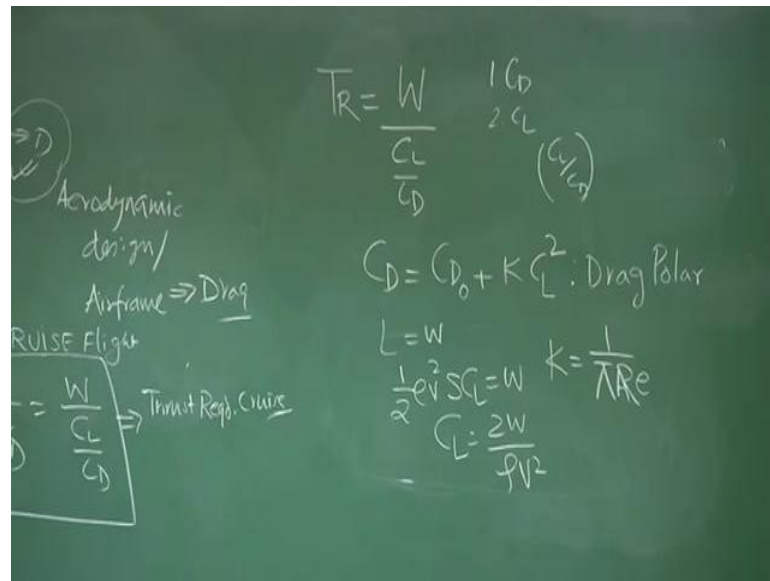 ⇒ D
Aerodynamic
design/
Airframe ⇒ Drag
RUISE Flight
= W / (C_L / C_D) ⇒ Thrust Reqd. Cruise
D
T_R = W / (C_L / C_D)
1 C_D
2. C_L
(C_L/C_D)
C_D = C_D₀ + K C_L² : Drag Polar
L = W
½ ρv² S C_L = W
K = 1 / πARe
C_L = 2W / ρV²